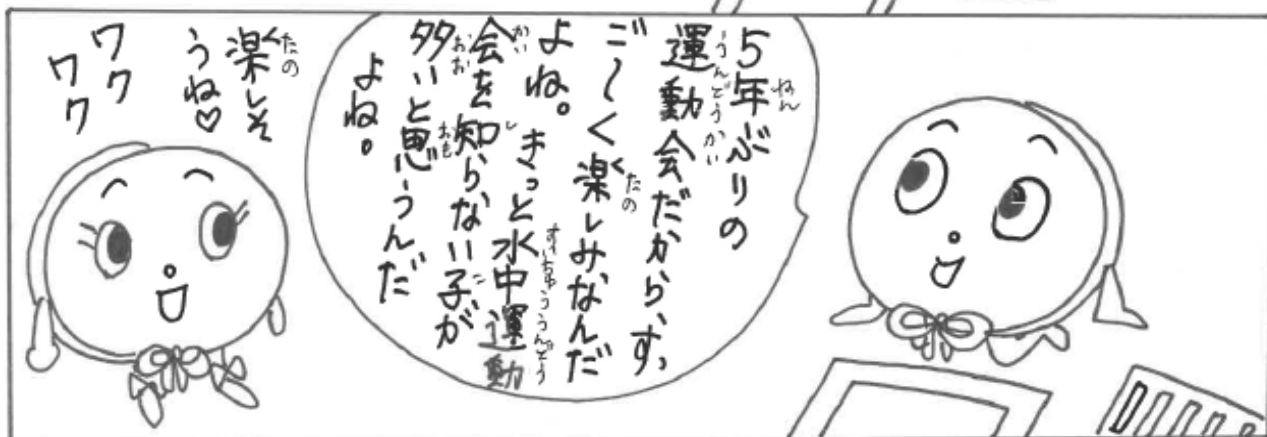 5年ぶりの
運動会だからす
ご〜く楽しみなんだ
よね。きっと水中運動
会を知らない子が
多いと思うんだ
よね。
楽しそ
うね♡
ワク
ワク